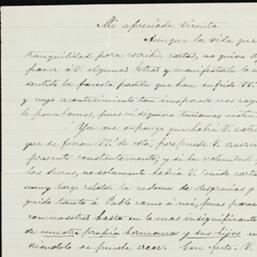 Mi apreciado Vicente
Aunque la vida que
tranquilidad para escribir cartas, no quiero
poner à V. algunas letras y manifestarle lo
sentido la funesta perdida que han sufrido
y cuyo acontecimiento tan inesperado nos
lo pensabamos, pues ni siquiera teniamos
Ya me supongo que habrá V.
que se fueron de esta, pues puede V. creer
presente constantemente; y si la voluntad
los deseos, no solamente habria V. tenido cartas
muy larga relatar la cadena de desgracias y
tanto á Pablo como á mi, pues
con nosotros hasta en lo mas insignificante
de nuestra propia hermana y sus hijos
se puede creer. Con esto V.